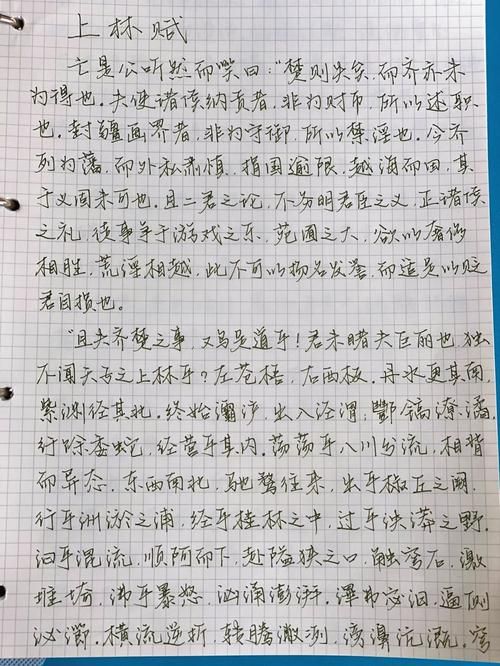 上林赋
亡是公听然而笑曰："楚则失矣,而齐亦未
为得也.夫使诸侯纳贡者,非为财币,所以述职
也.封疆画界者,非为守御,所以禁淫也.今齐
列为藩,而外私肃慎,捐国逾限,越海而田,其
于义固未可也.且二君之论,不务明君臣之义,正诸侯
之礼,徒事争于游戏之乐,苑囿之大,欲以奢侈
相胜,荒淫相越,此不可以扬名发誉,而适足以贬
君自损也.
"且夫齐楚之事,又乌足道乎!君未睹夫巨丽也,独
不闻天子之上林乎?左苍梧,右西极.丹水更其南,
紫渊径其北.终始灞浐,出入泾渭;酆镐潦潏
行 委蛇,经营乎其内.荡荡乎八川分流,相背
而异态.东西南北,驰骛往来,出乎椒丘之阙,
行乎洲淤之浦,经乎桂林之中,过乎泱漭之野.
汩乎混流,顺阿而下,赴隘狭之口,触穹石,激
堆埼,沸乎暴怒,汹涌澎湃.滭弗宓汩,逼侧
泌瀄.横流逆折,转腾潎洌,滂濞沆溉.穹